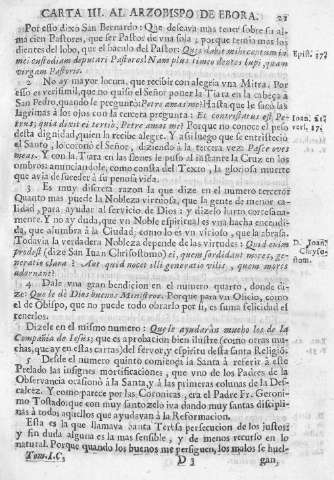 CARTA III. AL ARZOBISPO DE EBORA. 21
Por esso dixo San Bernardo: Que deseava mas tener sobre su al-
ma cien Pastores, que ser Pastor de una sola; porque temio mas los
dientes del lobo, que el baculo del Pastor: Quis dabit mihi centum in
mei custodiam deputari Pastores? Nam plus timeo dentes lupi, quam
virgam Pastoris.
Epist. 17.
2 No ay mayor locura, que recibir con alegria vna Mitra. Por
esso es verisimil, que no quiso el Señor poner la Tiara en la cabeça à
San Pedro, quando le preguntò: Petre amas me? Hasta que le sacò las
lagrimas à los ojos con la tercera pregunta: Et contristatus est Pe-
trus, quia dixit ei tertiò, Petre amas me? Porque no conoce el peso
desta dignidad, quien la recibe alegre. Y assi luego que le entristeciò
el Santo, lo coronò el Señor, diziendo à la tercera vez: Pasce oves
meas. Y con la Tiara en las sienes le puso al instante la Cruz en los
ombros anunciandole, como consta del Texto, la gloriosa muerte
que avia de suceder à su penosa vida.
Ioan. 21.
vers. 17.
3 Es muy discreta razon la que dize en el numero tercero:
Quanto mas puede la Nobleza virtuosa, que la gente de menor ca-
lidad, para ayudar al servicio de Dios; y dizelo harto cortesana-
mente. Y no ay duda, que vn Noble espiritual es vna hacha encendi-
da, que alumbra à la Ciudad; como lo es vn vicioso, que la abrasa.
Todavia la verdadera Nobleza depende de las virtudes: Quid enim
prodest (dize San Iuan Chrisostomo) ei, quem sordidant mores, ge-
neratio clara? Aut quid nocet illi generatio vilis, quem mores
adornant?
D. Joan.
Chryso-
stom.
4 Dale vna gran bendicion en el numero quarto, donde di-
ze: Que le dè Dios buenos Ministros. Porque para vn Oficio, como
el de Obispo, que no puede todo obrarlo por si, es suma felicidad el
tenerlos.
Dizele en el mismo numero: Que le ayudaràn mucho los de la
Compañia de Iesus; que es aprobacion bien ilustre (como otras mu-
chas, que ay en estas cartas) del fervor, y espiritu desta santa Religion.
5 Desde el numero quinto comiença la Santa à referir à este
Prelado las insignes mortificaciones, que vno de los Padres de la
Observancia ocasionò à la Santa, y à las primeras colunas de la Des-
calcez. Y como parece por las Coronicas, era el Padre Fr. Geroni-
mo Tostado: que con muy santo zelo iva dando muy santas discipli-
nas à todos aquellos que ayudavan à la Reformacion.
Esta es la que llamava Santa Teresa persecucion de los justos:
y sin duda alguna es la mas sensible, y de menos recurso en lo
natural. Porque quando los buenos me persiguen, los malos se huel-
Tom. I. C. D 3 gan,